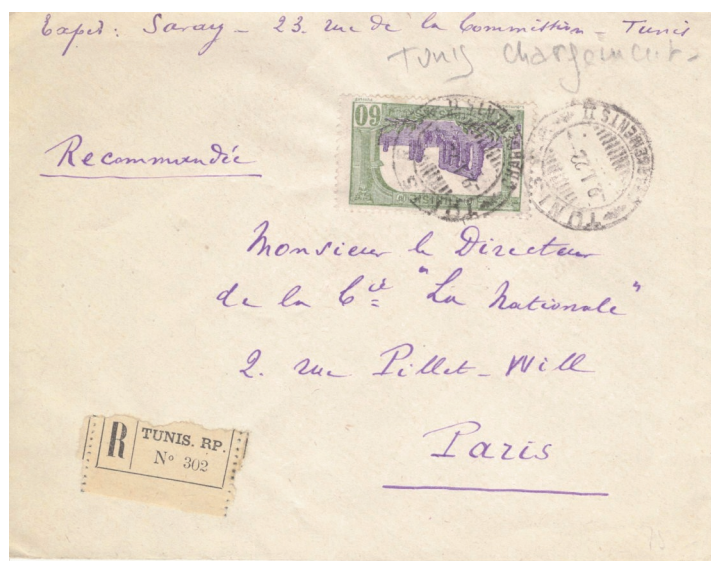 Expér: Saray - 23. rue de la Commission - Tunis
Tunis chargement
60
Recommandée
TUNIS
CHARGEMENTS II
Monsieur le Directeur
de la Cie "La Nationale"
2. rue Pillet-Will
Paris
R TUNIS. RP.
No 302